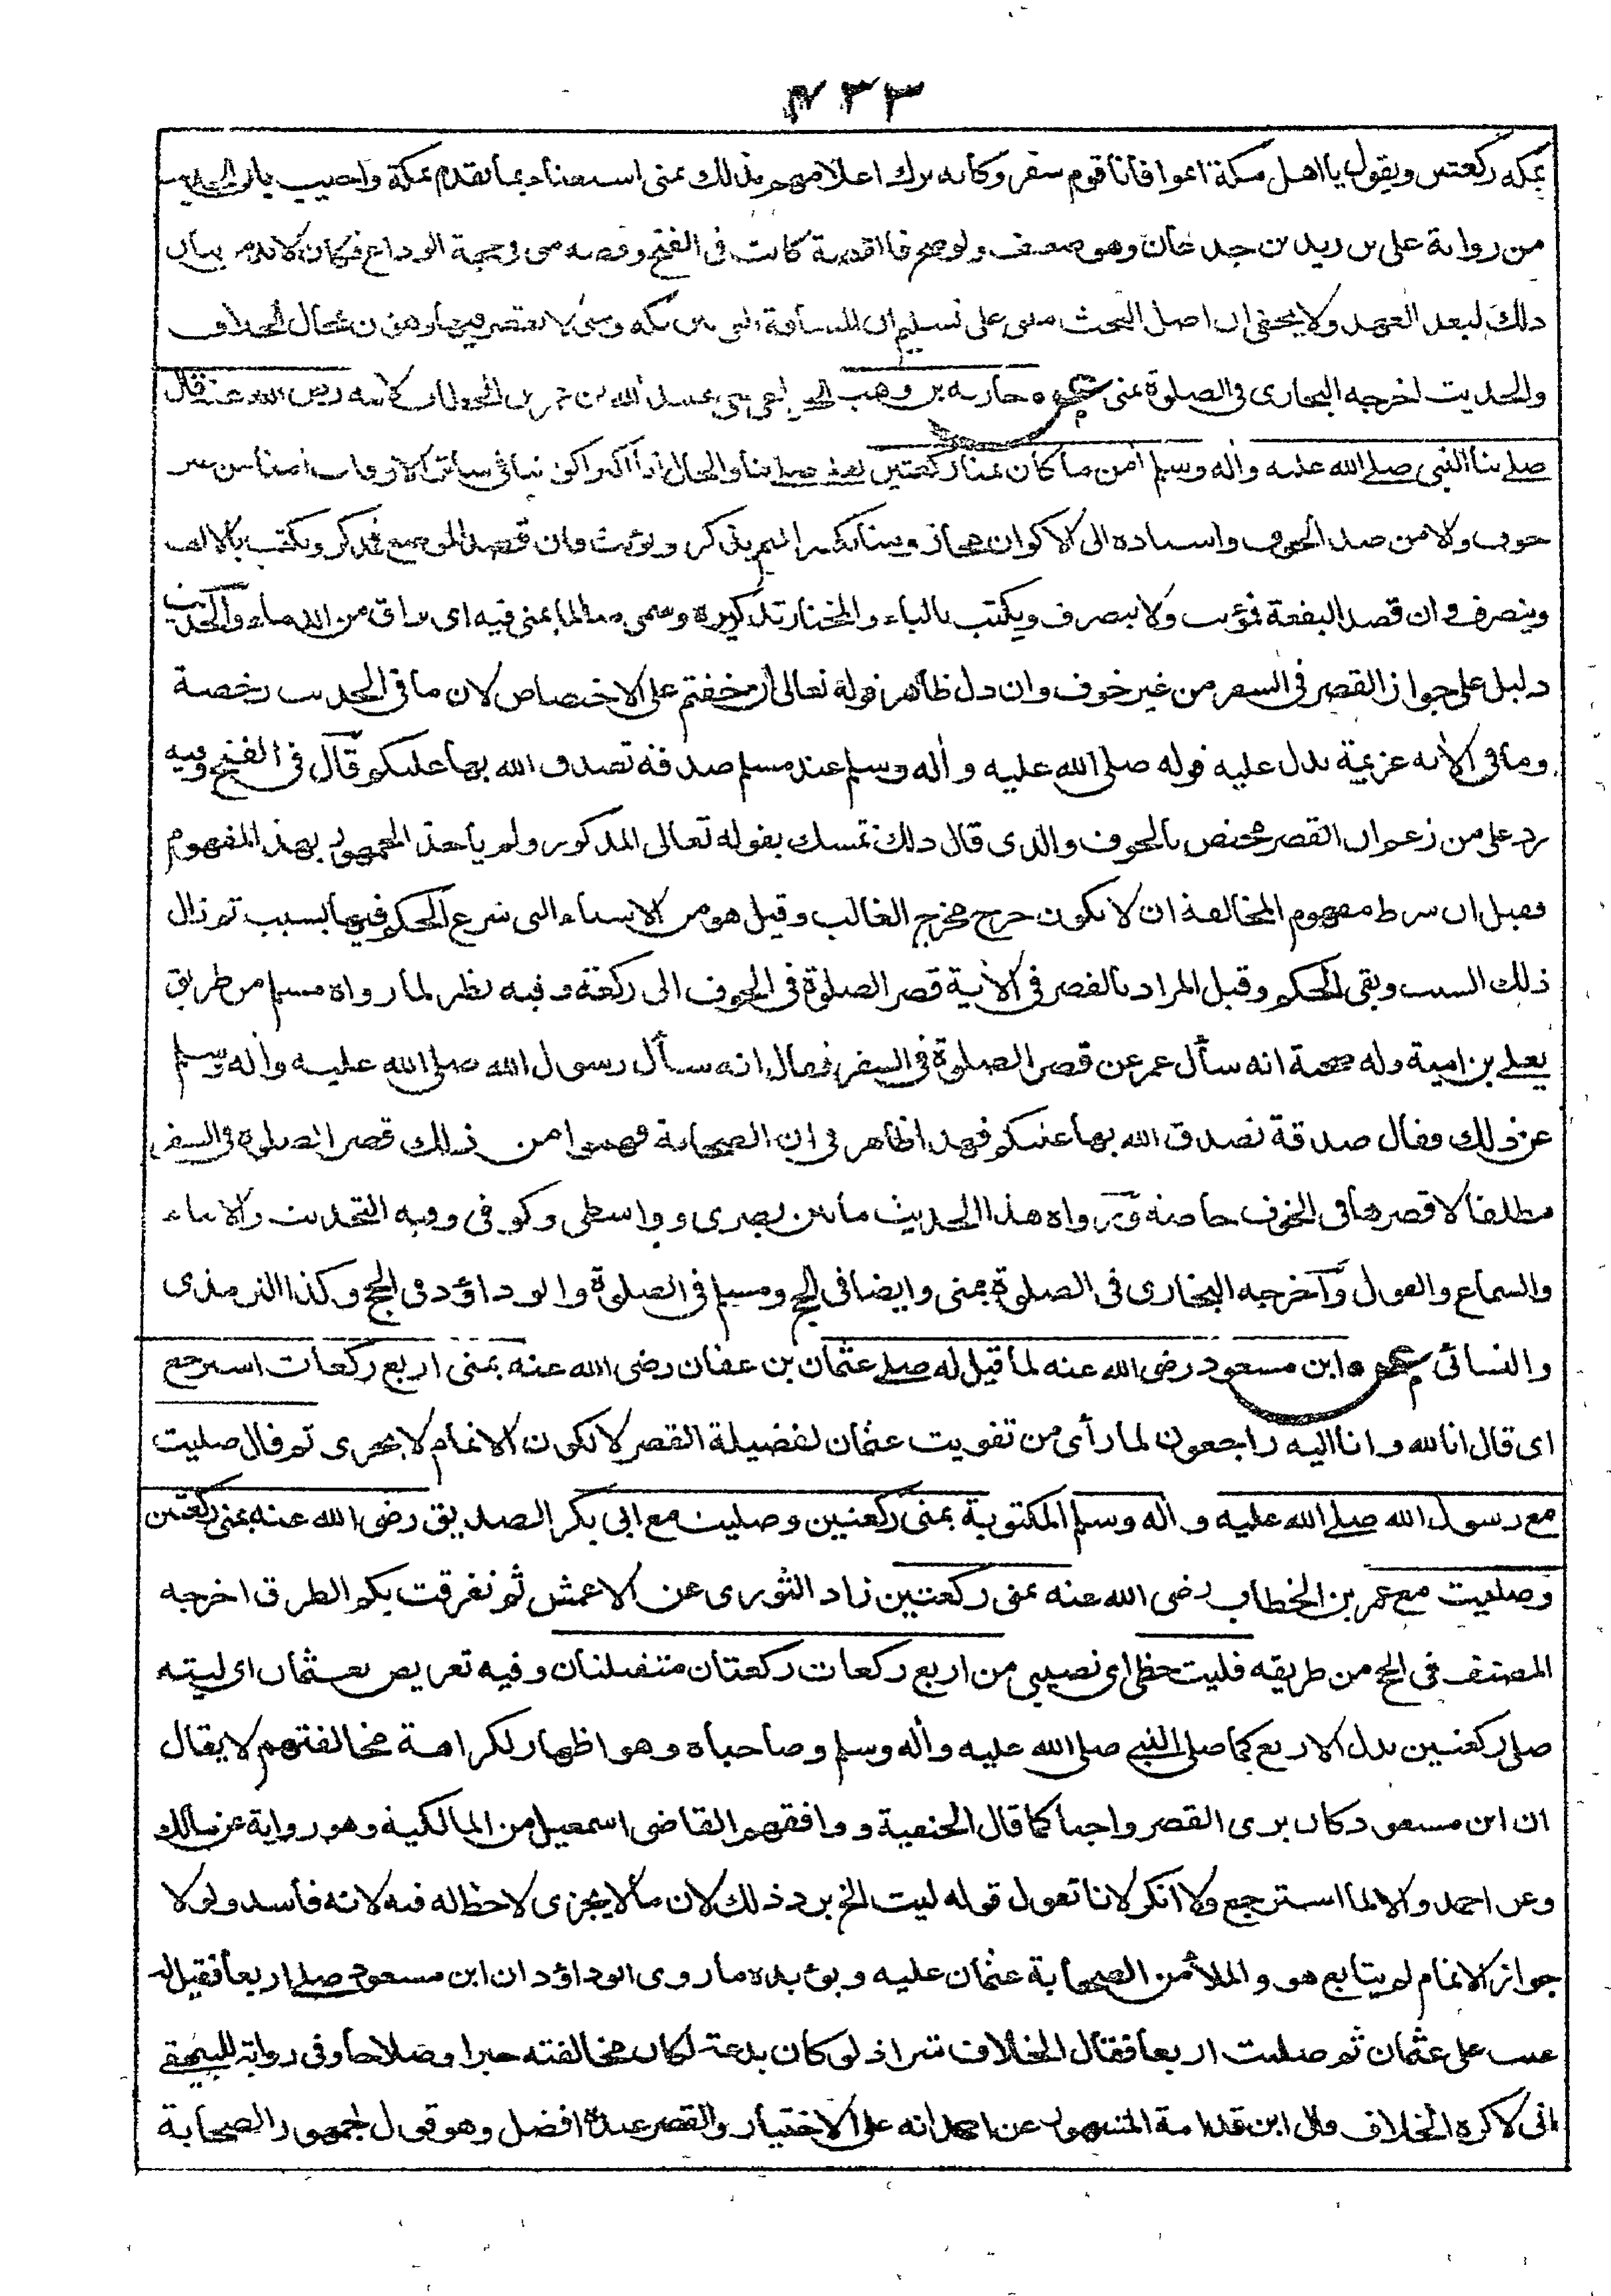 ٧٣٣
بمكة ركعتين ويقول يا اهل مكة اتموا فانا قوم سفر وكأنه ترك اعلامهم بذلك بمنى استغناء بما تقدم بمكة واجيب بان الحديث
من رواية على بن زيد بن جدعان وهو ضعيف ولو صح فالقصة كانت فى الفتح وقصة منى فى حجة الوداع فكان لابد من بيان
ذلك لبعد العهد ولا يخفى ان اصل البحث مبنى على تسليم ان المسافة التى بين مكة ومنى لا تقصر فيها وهو من محال الخلاف
والحديث اخرجه البخارى فى الصلوة بمنى عن حارثة بن وهب رضى الله عنه قال
صلے بنا النبى صلے الله عليه واٰله وسلم اٰمن ما كان بمنا ركعتين
ولا من صد واسناده الى الاكوان مجاز ومنا يذكر ويؤنث فان قصد الموضع فمذكر ويكتب بالالف
وينصرف وان قصد البقعة فمؤنث ولا ينصرف ويكتب بالياء والمختار تذكيره وسمى منا لما يمنى فيه اى يراق من الدماء والحديث
دليل على جواز القصر فى السفر من غير خوف وان دل ظاهر قوله تعالى ان خفتم على الاختصاص لان ما فى الحديث رخصة
وما فى الاٰية عزيمة يدل عليه قوله صلى الله عليه واٰله وسلم عند مسلم صدقة تصدق الله بها عليكم قال فى الفتح وفيه
رد على من زعم ان القصر مختص بالخوف والذى قال ذلك تمسك بقوله تعالى المذكور ولم يأخذ الجمهور بهذا المفهوم
فقيل ان شرط مفهوم المخالفة ان لا يكون خرج مخرج الغالب وقيل هو من الاشياء التى شرع الحكم فيها بسبب ثم زال
ذلك السبب وبقى الحكم وقيل المراد بالقصر فى الاٰية قصر الصلوة فى الخوف الى ركعة وفيه نظر لما رواه مسلم من طريق
يعلے بن امية وله صحبة انه سأل عمر عن قصر الصلوة فى السفر فقال انه سأل رسول الله صلى الله عليه واٰله وسلم
عن ذلك فقال صدقة تصدق الله بها عليكم فهذا ظاهر فى ان الصحابة فهموا من ذلك قصر الصلوة فى السفر
مطلقا لا قصرها فى الخوف خاصة ورواه هذا الحديث ما بين بصرى وواسطى وكوفى وفيه التحديث والانباء
والسماع والقول واخرجه البخارى فى الصلوة بمنى وايضا فى الحج ومسلم فى الصلوة وابو داؤد فى الحج وكذا الترمذى
والنسائى عن ابن مسعود رضى الله عنه لما قيل له صلے عثمان بن عفان رضى الله عنه بمنى اربع ركعات استرجع
اى قال انا لله وانا اليه راجعون لما رأى من تفويت عثمان لفضيلة القصر لا لكون الاتمام لا يجزى ثم قال صليت
مع رسول الله صلے الله عليه واٰله وسلم المكتوبة بمنى ركعتين وصليت مع ابى بكر الصديق رضى الله عنه بمنى ركعتين
وصليت مع عمر بن الخطاب رضى الله عنه بمنى ركعتين زاد الثورى عن الاعمش ثم تفرقت بكم الطرق اخرجه
المصنف فى الحج من طريقه فليت حظى اى نصيبى من اربع ركعات ركعتان متقبلتان وفيه تعريض بعثمان اى ليته
صلى ركعتين بدل الاربع كما صلى النبى صلى الله عليه واٰله وسلم وصاحباه وهو اظهار لكراهة مخالفتهم لا يقال
ان ابن مسعود كان يرى القصر واجبا كما قال الحنفية ووافقهم القاضى اسمعيل من المالكية وهو رواية عن مالك
وعن احمد والا لما استرجع ولا انكر لانا نقول قوله ليت الخ يرد ذلك لان ما لا يجزى لا حظ له فيه لانه فاسد ولولا
جواز الاتمام لم يتابع هو والملأ من الصحابة عثمان عليه ويؤيده ما روى ابو داؤد ان ابن مسعود صلے اربعا فقيل له
عبت على عثمان ثم صليت اربعا فقال الخلاف شر اذ لو كان بدعة لكان مخالفته خيرا وصلاحا وفى رواية للبيهقى
انى لاكره الخلاف وقال ابن قدامة المشهور عن احمد انه على الاختيار والقصر عنده افضل وهو قول جمهور الصحابة